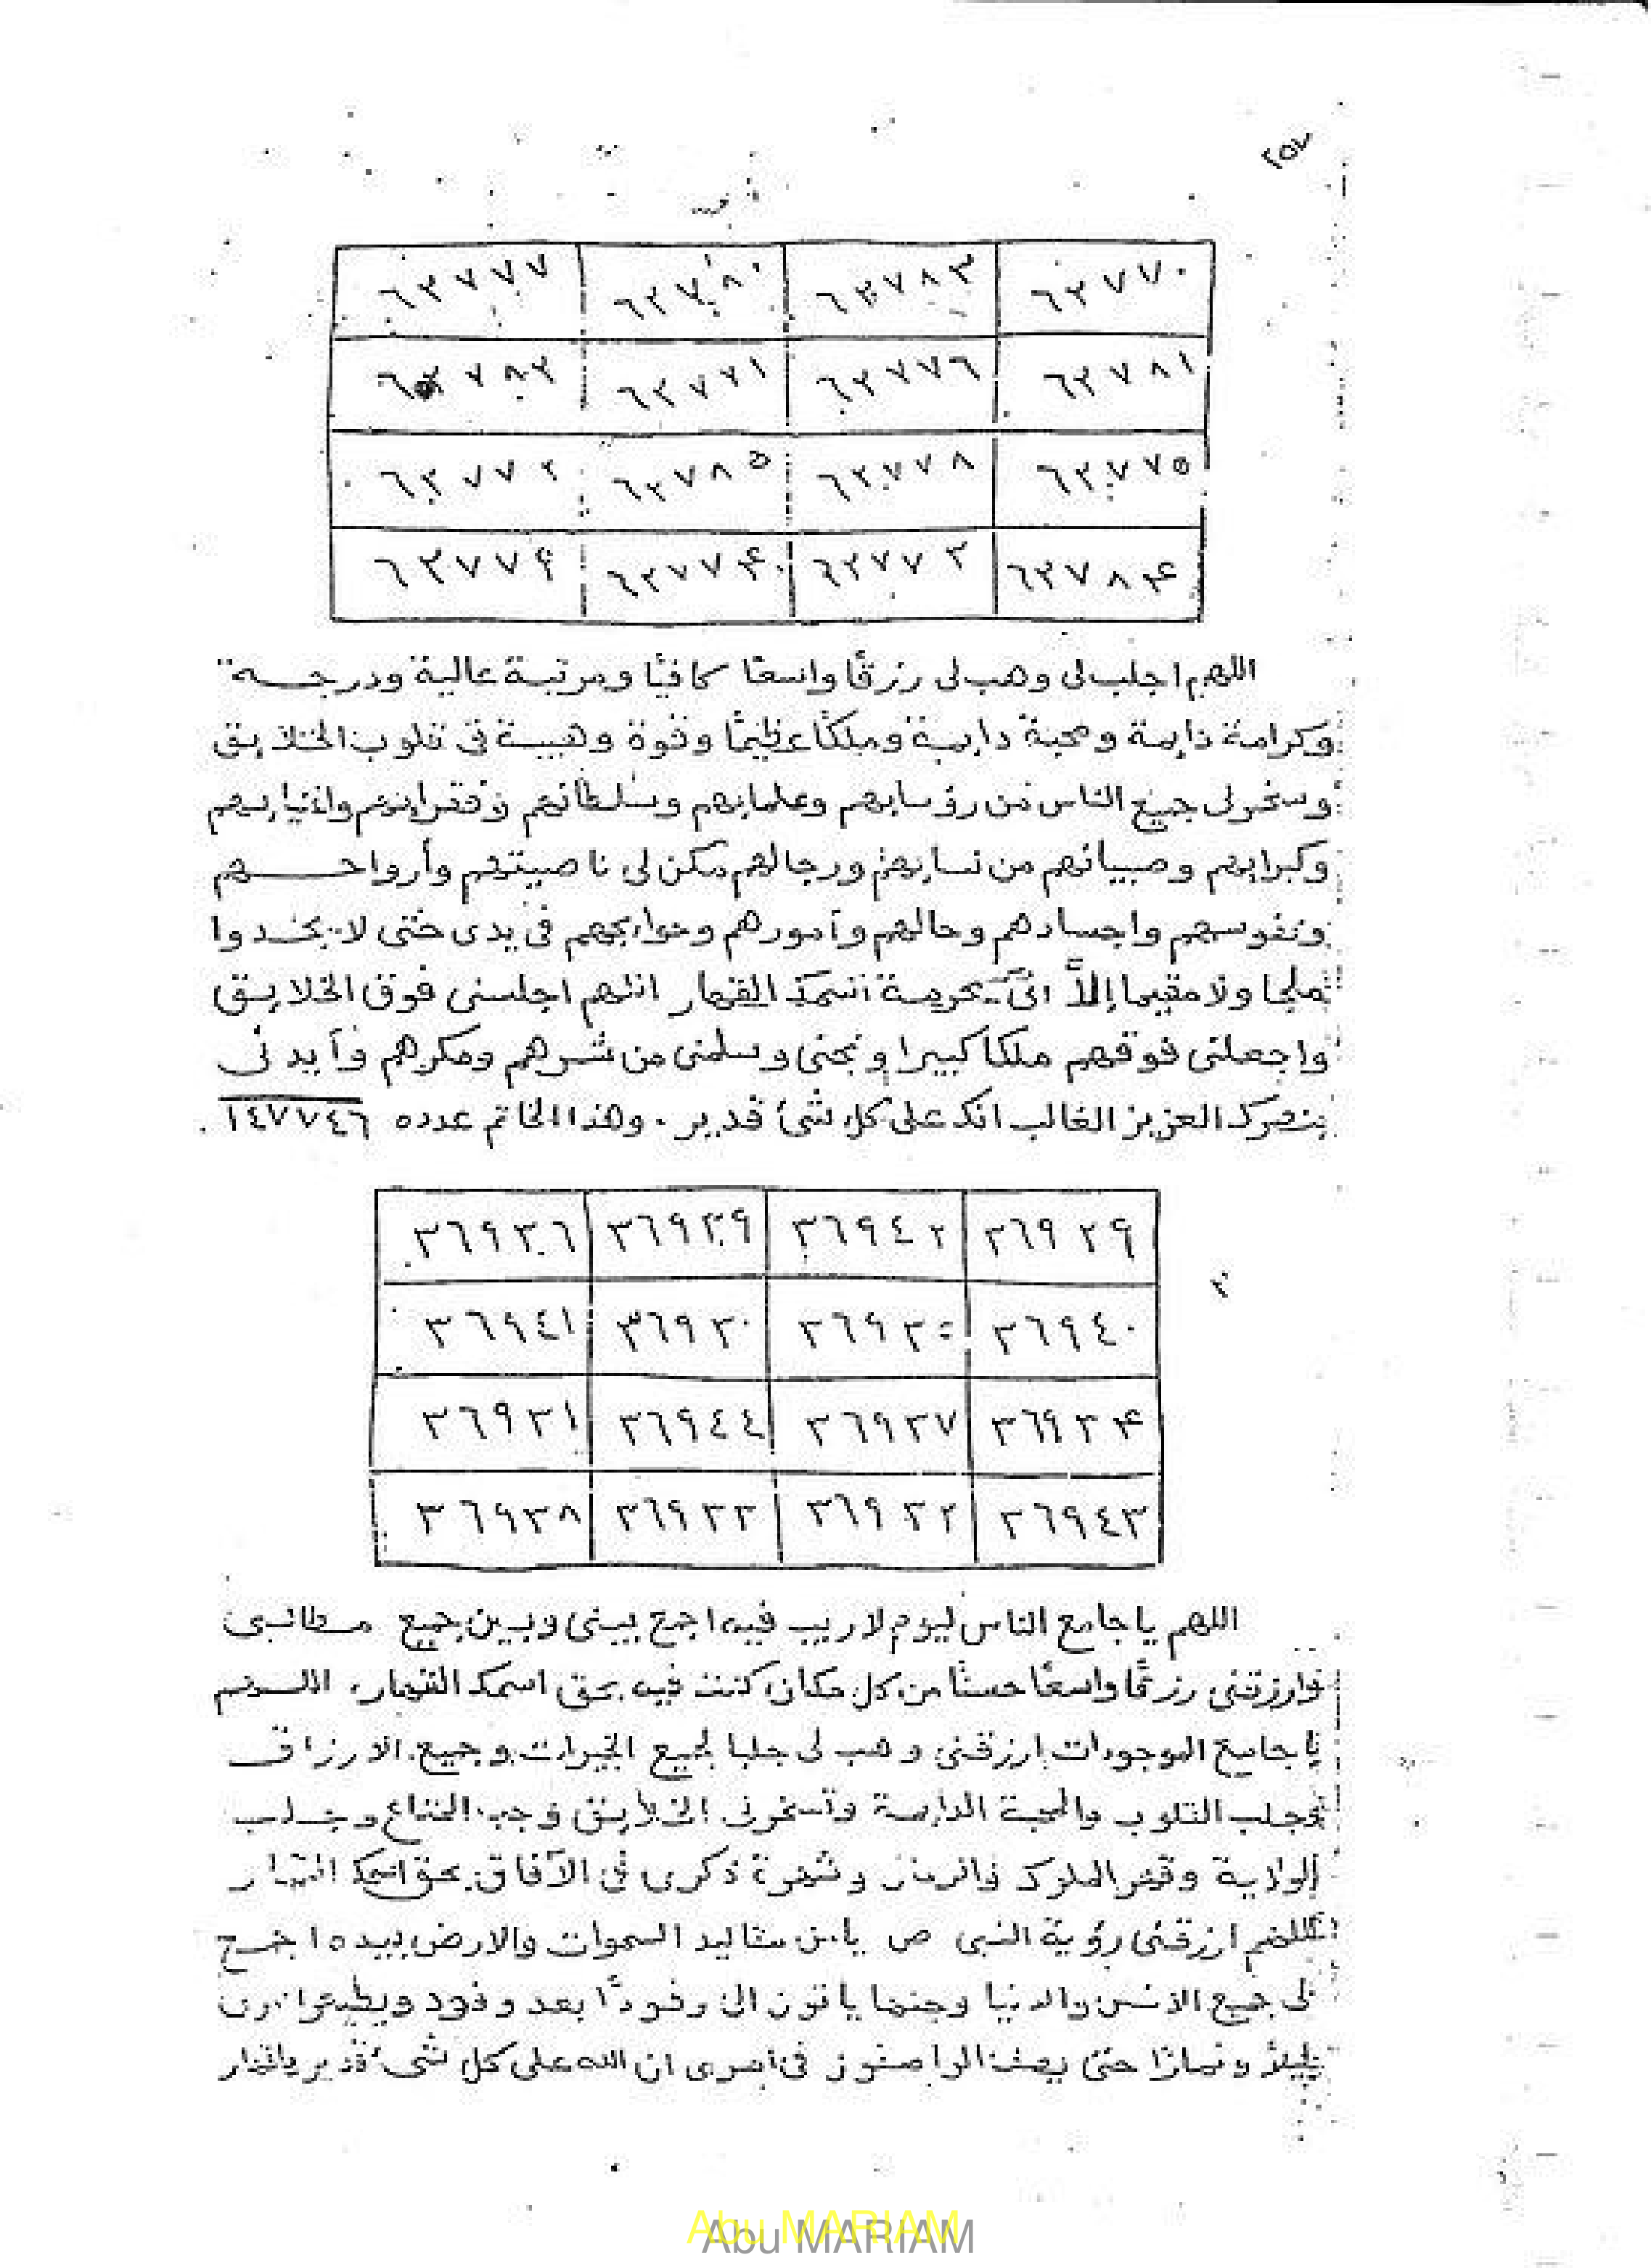 ٢٥٧
٦٣٧٧٧ ٦٣٧٨٠ ٦٣٧٨٣ ٦٣٧٧٠
٧٨٢ ٦٣٧٧١ ٦٣٧٧٦ ٦٣٧٨١
٦٣٧٧٢ ٦٣٧٨٥ ٦٣٧٧٨ ٦٣٧٧٥
٦٣٧٧٩ ٦٣٧٧٤ ٦٣٧٧٣ ٦٣٧٨٤
اللهم اجلب لى وهب لى رزقًا واسعًا كافيًا ومرتبة عالية ودرجة
وكرامة دايمة ومحبة دايمة وملكًا عظيمًا وقوة وهيبة فى قلوب الخلايق
وسخر لى جميع الناس من رؤسايهم وعلمايهم وسلطانهم وفقرايهم واغنيايهم
وكبرايهم وصبيانهم من نسايهم ورجالهم مكن لى ناصيتهم وأرواحهم
ونفوسهم واجسادهم وحالهم وأمورهم وحوايجهم فى يدى حتى لا يجدوا
ملجا ولا مقيما إلاَّ الىَّ بحرمة اسمك القهار اللهم اجلسنى فوق الخلايق
واجعلنى فوقهم ملكا كبيرا ونجنى وسلمنى من شرهم ومكرهم وأيدنى
بنصرك العزيز الغالب انك على كل شئ قدير . وهذا الخاتم عدده ١٤٧٧٤٦ .
٣٦٩٣٦ ٣٦٩٣٩ ٣٦٩٤٢ ٣٦٩٢٩
٣٦٩٤١ ٣٦٩٣٠ ٣٦٩٣٥ ٣٦٩٤٠
٣٦٩٣١ ٣٦٩٤٤ ٣٦٩٣٧ ٣٦٩٣٤
٣٦٩٣٨ ٣٦٩٣٣ ٣٦٩٣٢ ٣٦٩٤٣
اللهم يا جامع الناس ليوم لا ريب فيه اجمع بينى وبين جميع مطالبى
وارزقنى رزقًا واسعًا حسنًا من كل مكان كنت فيه بحق اسمك القهار . اللهم
يا جامع الموجودات ارزقنى وهب لى جلبا لجميع الخيرات وجميع الارزاق
وجلب القلوب والمحبة الدايمة الخلايق وجلب
الولاية وقهر الملوك وشهرة ذكرى فى الآفاق بحق اسمك القهار
اللهم ارزقنى رؤية النبى ص يا من مقاليد السموات والارض بيده اجمع
لى جميع الانس والدنيا وجنها ياتون الىَّ وفودًا بعد وفود
ليلاً ونهارًا حتى فى امرى ان الله على كل شئ قدير
Abu MARIAM
Abu MARIAM